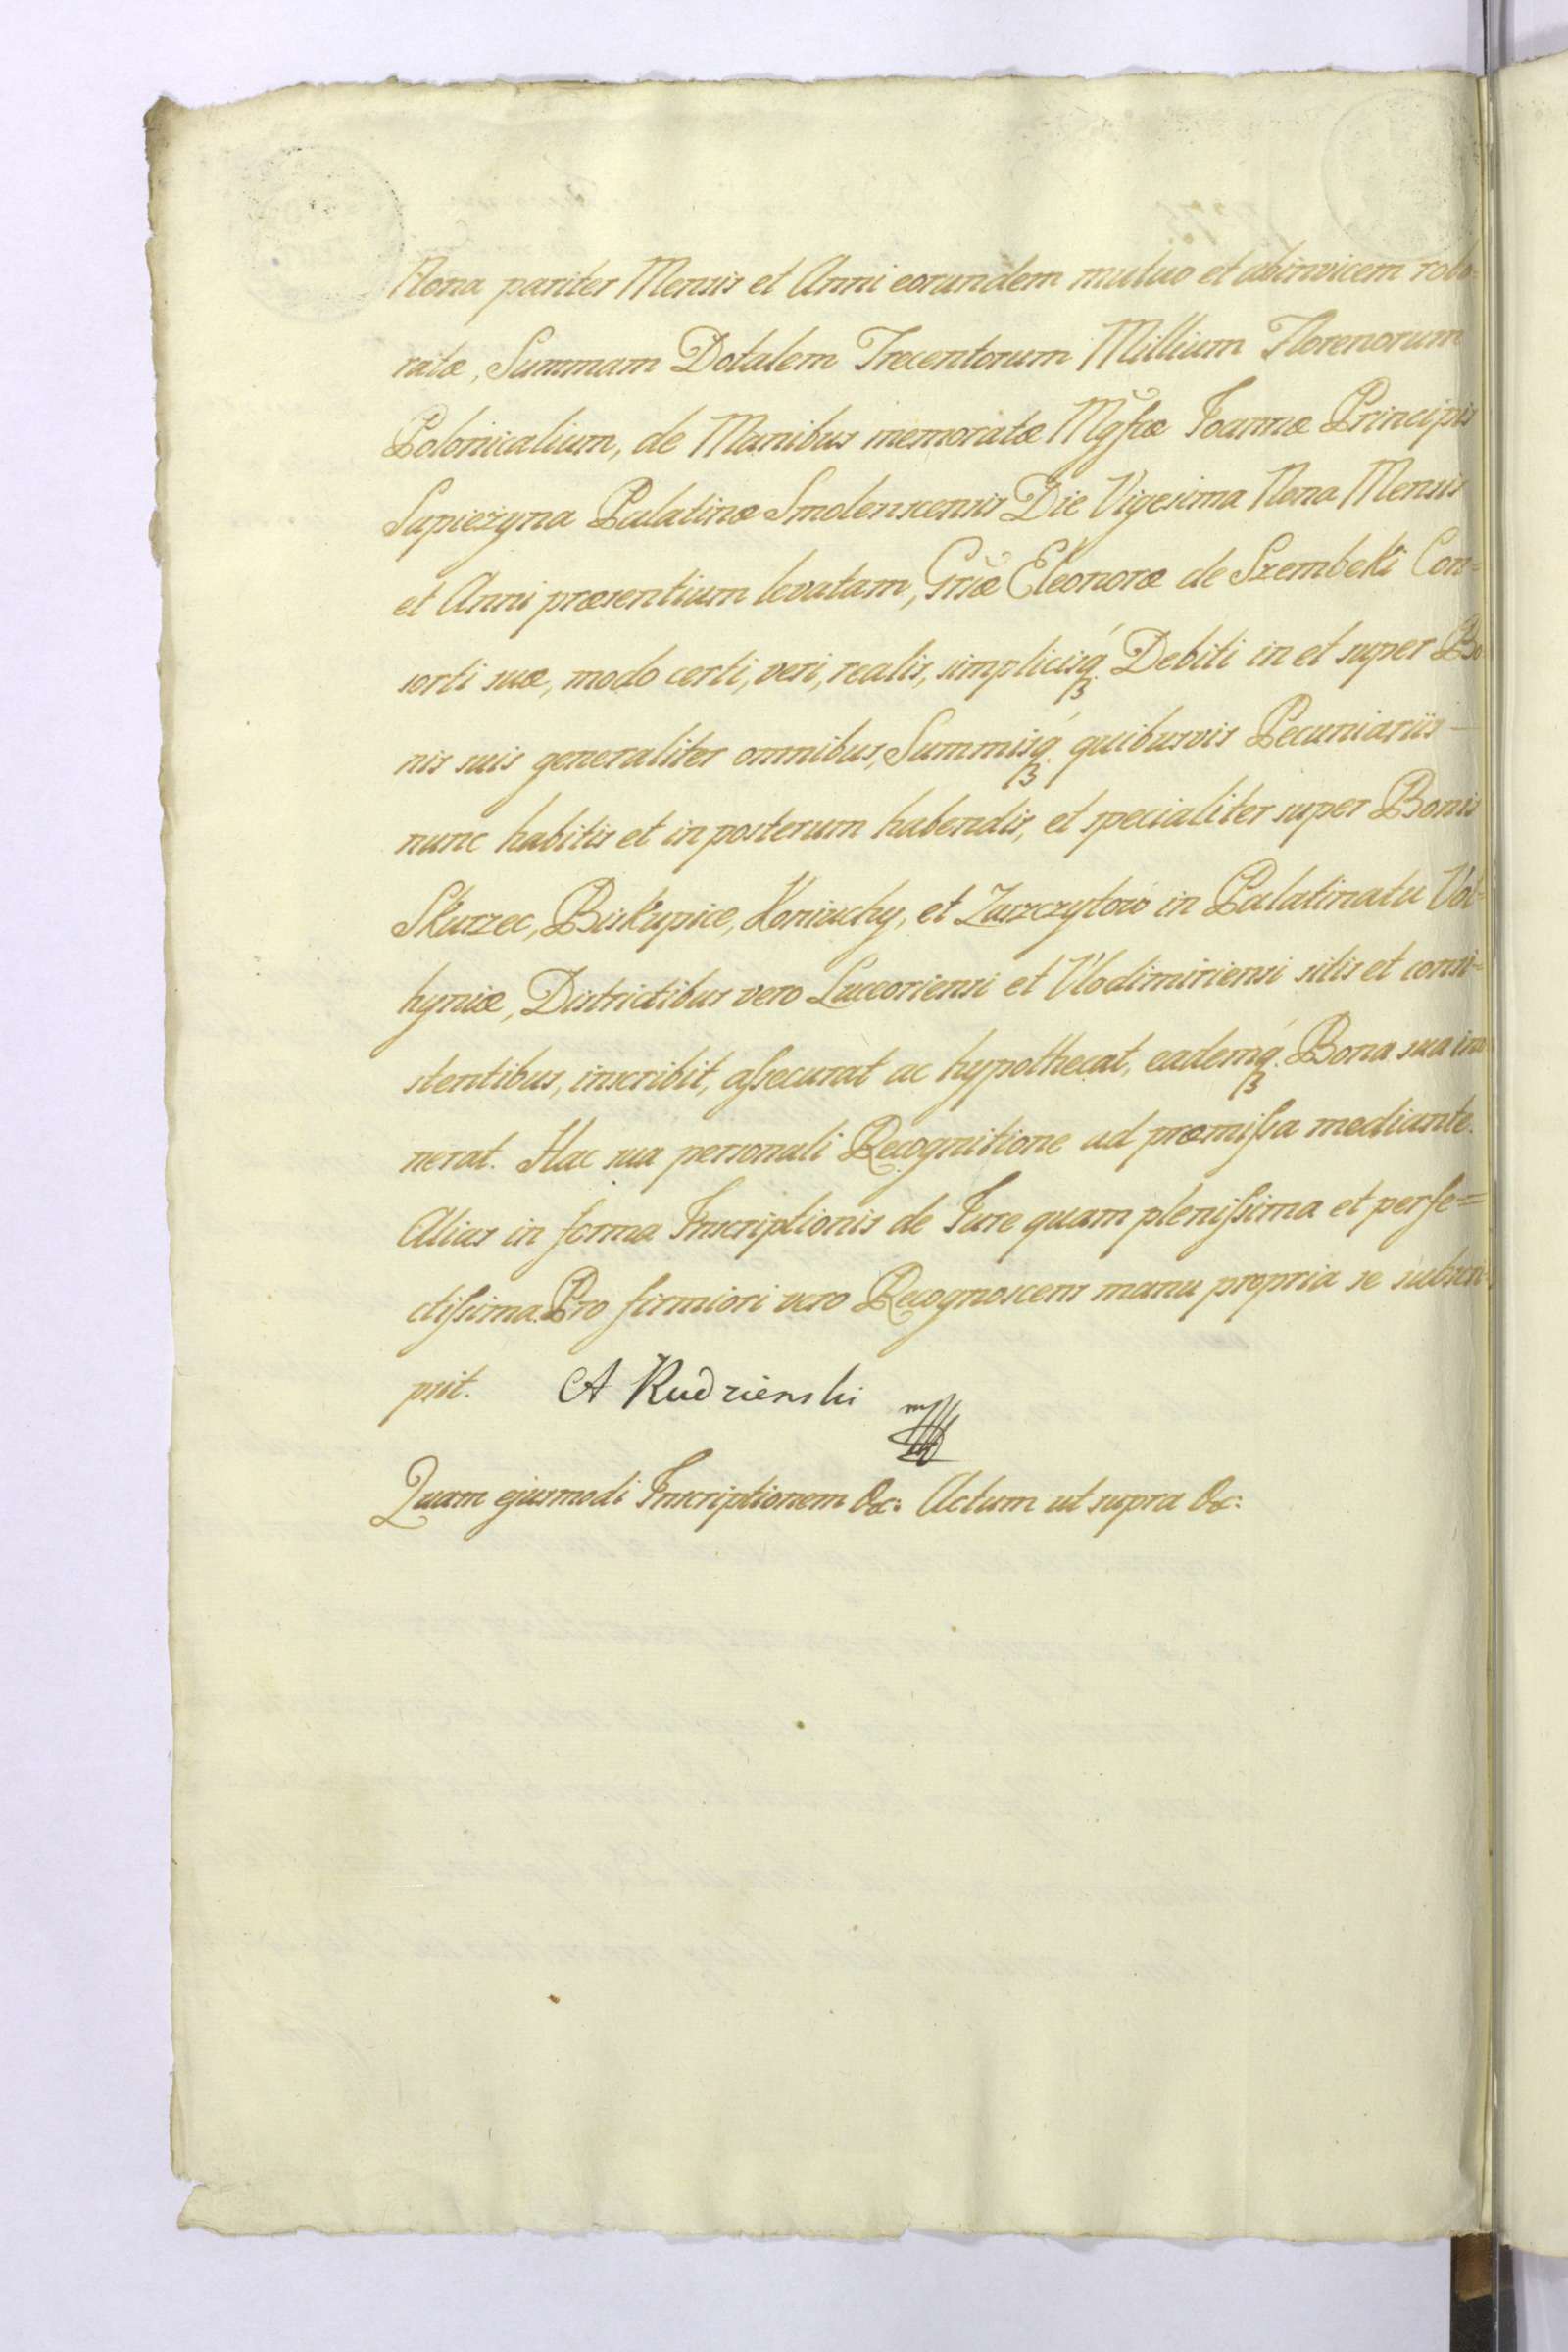 Nona pariter Mensis et Anni eorundem mutuo et abinvicem robo-
ratæ, Summam Dotalem Trecentorum Millium Florenorum
Polonicalium, de Manibus memoratæ Mgfcæ Joannæ Principis
Sapieżyna Palatinæ Smolenscensis Die Vigesima Nona Mensis
et Anni præsentium levatam, Grsæ Eleonoræ de Szembeki Con=
sorti suæ, modo certi, veri, realis, simplicisq́ꝫ Debiti in et super Bo
nis suis generaliter omnibus, Summisq́ꝫ quibusvis Pecuniariis —
nunc habitis et in posterum habendis, et specialiter super Bonis
Skurzec, Biskupice, Koniuchy, et Zaszczytow in Palatinatu Vol=
hyniæ, Districtibus vero Luceoriensi et Vlodimiriensi sitis et consi=
stentibus, inscribit, assecurat ac hypothecat, eademq́ꝫ Bona sua in
nerat. Hac sua personali Recognitione ad præmissa mediante.
Alias in forma Inscriptionis de Jure quam plenissima et perfe=
ctissima. Pro firmiori vero Recognoscens manu propria se subscri-
psit. A Rudzienski mp
Quam ejusmodi Inscriptionem &c: Actum ut supra &c: